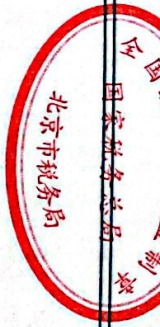 全国
制章
国家税务总局
北京市税务局